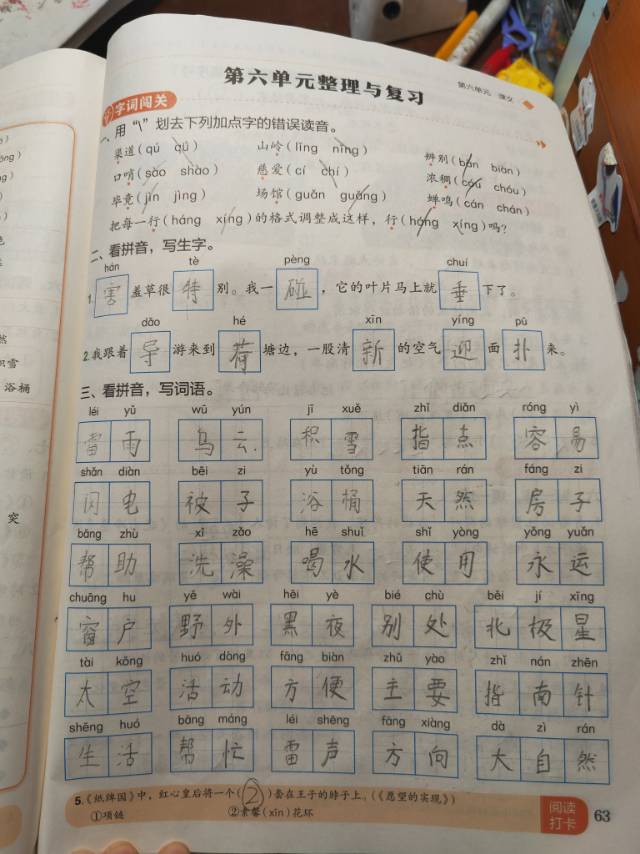 第六单元 课文
第六单元整理与复习
字词闯关
一、用“\”划去下列加点字的错误读音。
渠道(qú qǔ) 山岭(lǐng nǐng) 辨别(bàn biàn)
口哨(sào shào) 慈爱(cí chí) 浓稠(cóu chóu)
毕竟(jìn jìng) 场馆(guǎn guǎng) 蝉鸣(cán chán)
把每一行(háng xíng)的格式调整成这样，行(háng xíng)吗?
二、看拼音，写生字。
hán tè pèng chuí
1.害羞草很特别。我一碰，它的叶片马上就垂下了。
dǎo hé xīn yíng pū
2.我跟着导游来到荷塘边，一股清新的空气迎面扑来。
三、看拼音，写词语。
léi yǔ wū yún jī xuě zhǐ diǎn róng yì
雷雨 乌云 积雪 指点 容易
shǎn diàn bèi zi yù tǒng tiān rán fáng zi
闪电 被子 浴桶 天然 房子
bāng zhù xǐ zǎo hē shuǐ shǐ yòng yǒng yuǎn
帮助 洗澡 喝水 使用 永运
chuāng hu yě wài hēi yè bié chù běi jí xīng
窗户 野外 黑夜 别处 北极星
tài kōng huó dòng fāng biàn zhǔ yào zhǐ nán zhēn
太空 活动 方便 主要 指南针
shēng huó bāng máng léi shēng fāng xiàng dà zì rán
生活 帮忙 雷声 方向 大自然
5.《纸牌园》中，红心皇后将一个(②)套在王子的脖子上。(《愿望的实现》)
①项链 ②素馨(xīn)花环
阅读
打卡
63
然
积雪
浴桶
突